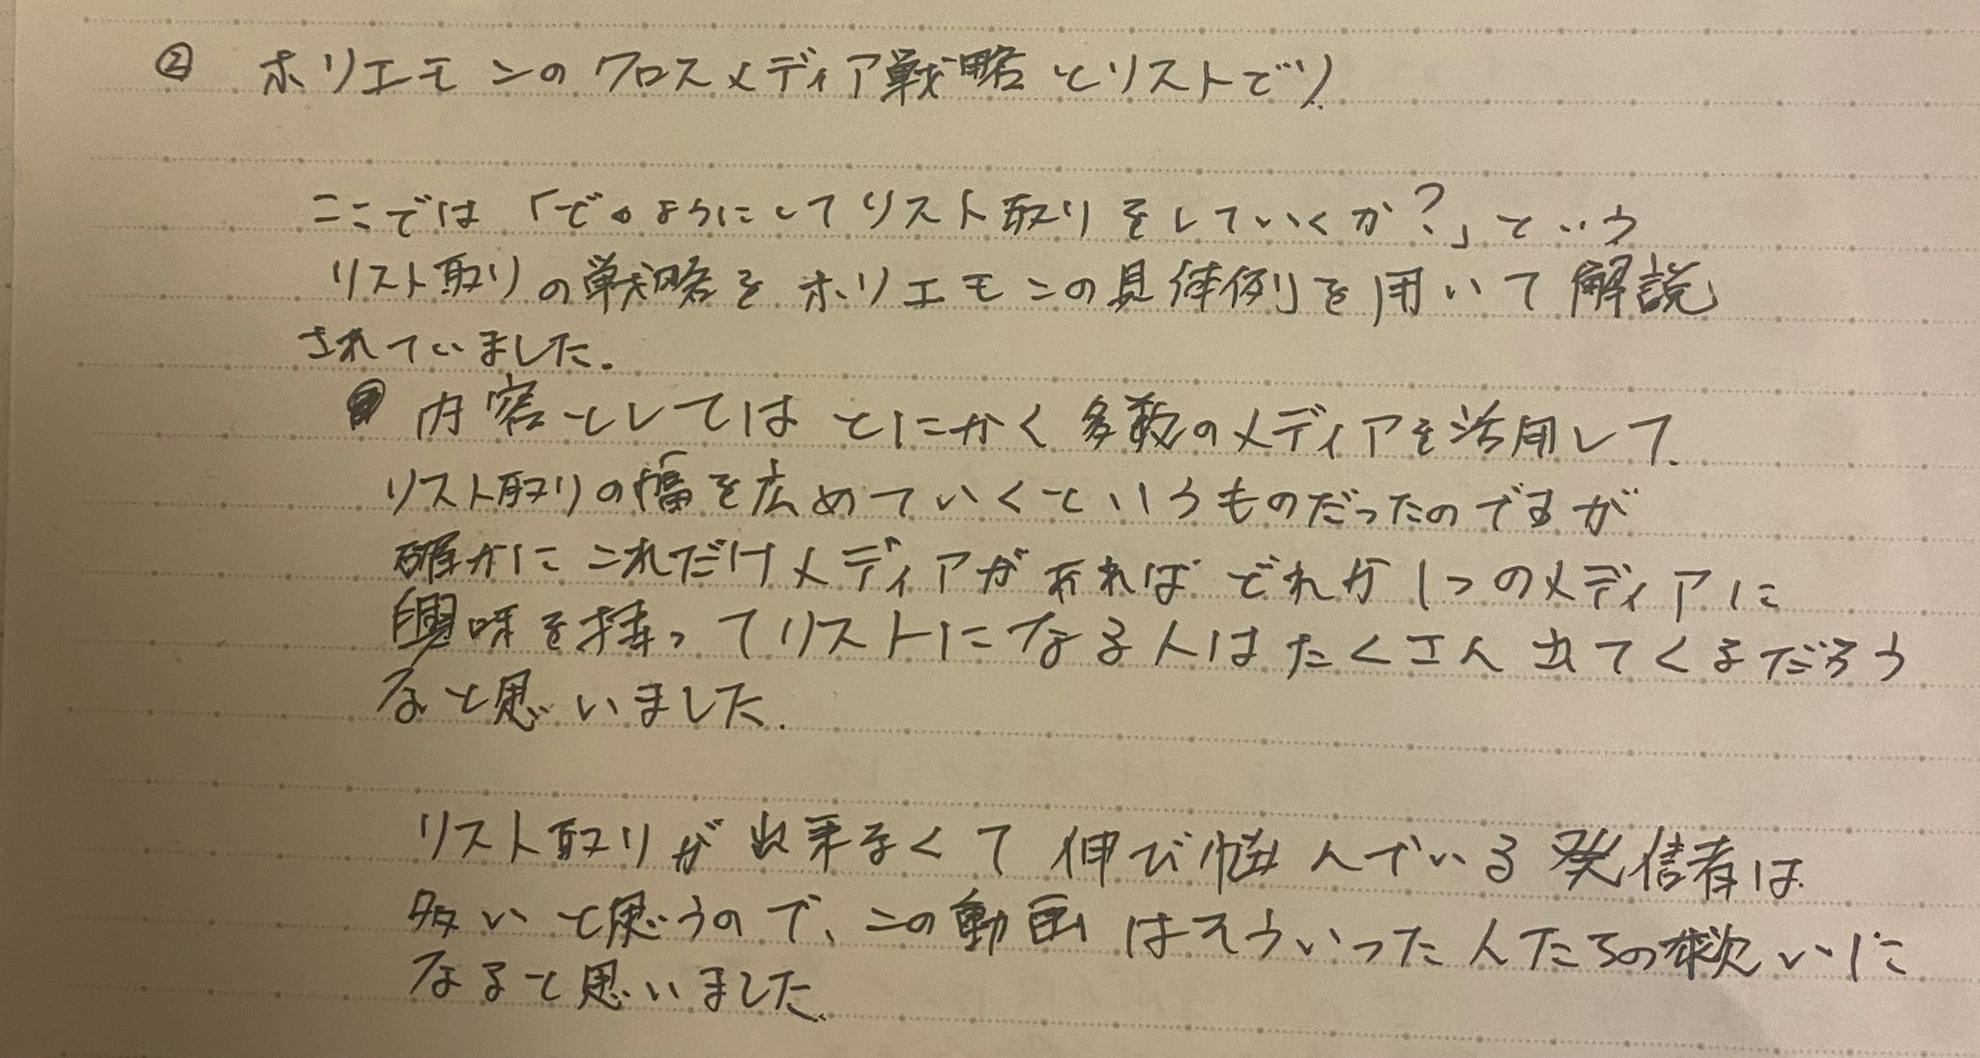 ② ホリエモンのクロスメディア戦略とリストどり
ここでは「どのようにしてリスト取りをしていくか?」という
リスト取りの戦略をホリエモンの具体例を用いて解説
されていました。
内容としてはとにかく多数のメディアを活用して
リスト取りの幅を広めていくというものだったのですが
確かにこれだけメディアがあればどれか1つのメディアに
興味を持ってリストになる人はたくさん出てくるだろう
なと思いました。
リスト取りが出来なくて伸び悩んでいる発信者は
多いと思うので、この動画はそういった人たちの救いに
なると思いました。